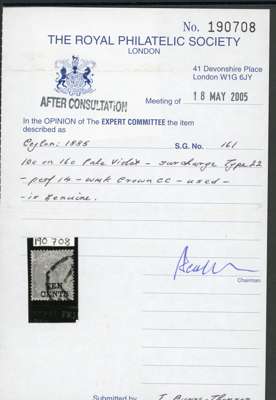 No. 190708
THE ROYAL PHILATELIC SOCIETY
LONDON
41 Devonshire Place
London W1G 6JY
AFTER CONSULTATION
Meeting of 18 MAY 2005
In the OPINION of The EXPERT COMMITTEE the item
described as
Ceylon: 1885 S.G. No. 161
10c on 16c Pale Violet - surcharge Type 22
- perf 14 - wmk Crown CC - used -
- is genuine.
190 708
TEN
CENTS
Chairman
Submitted by